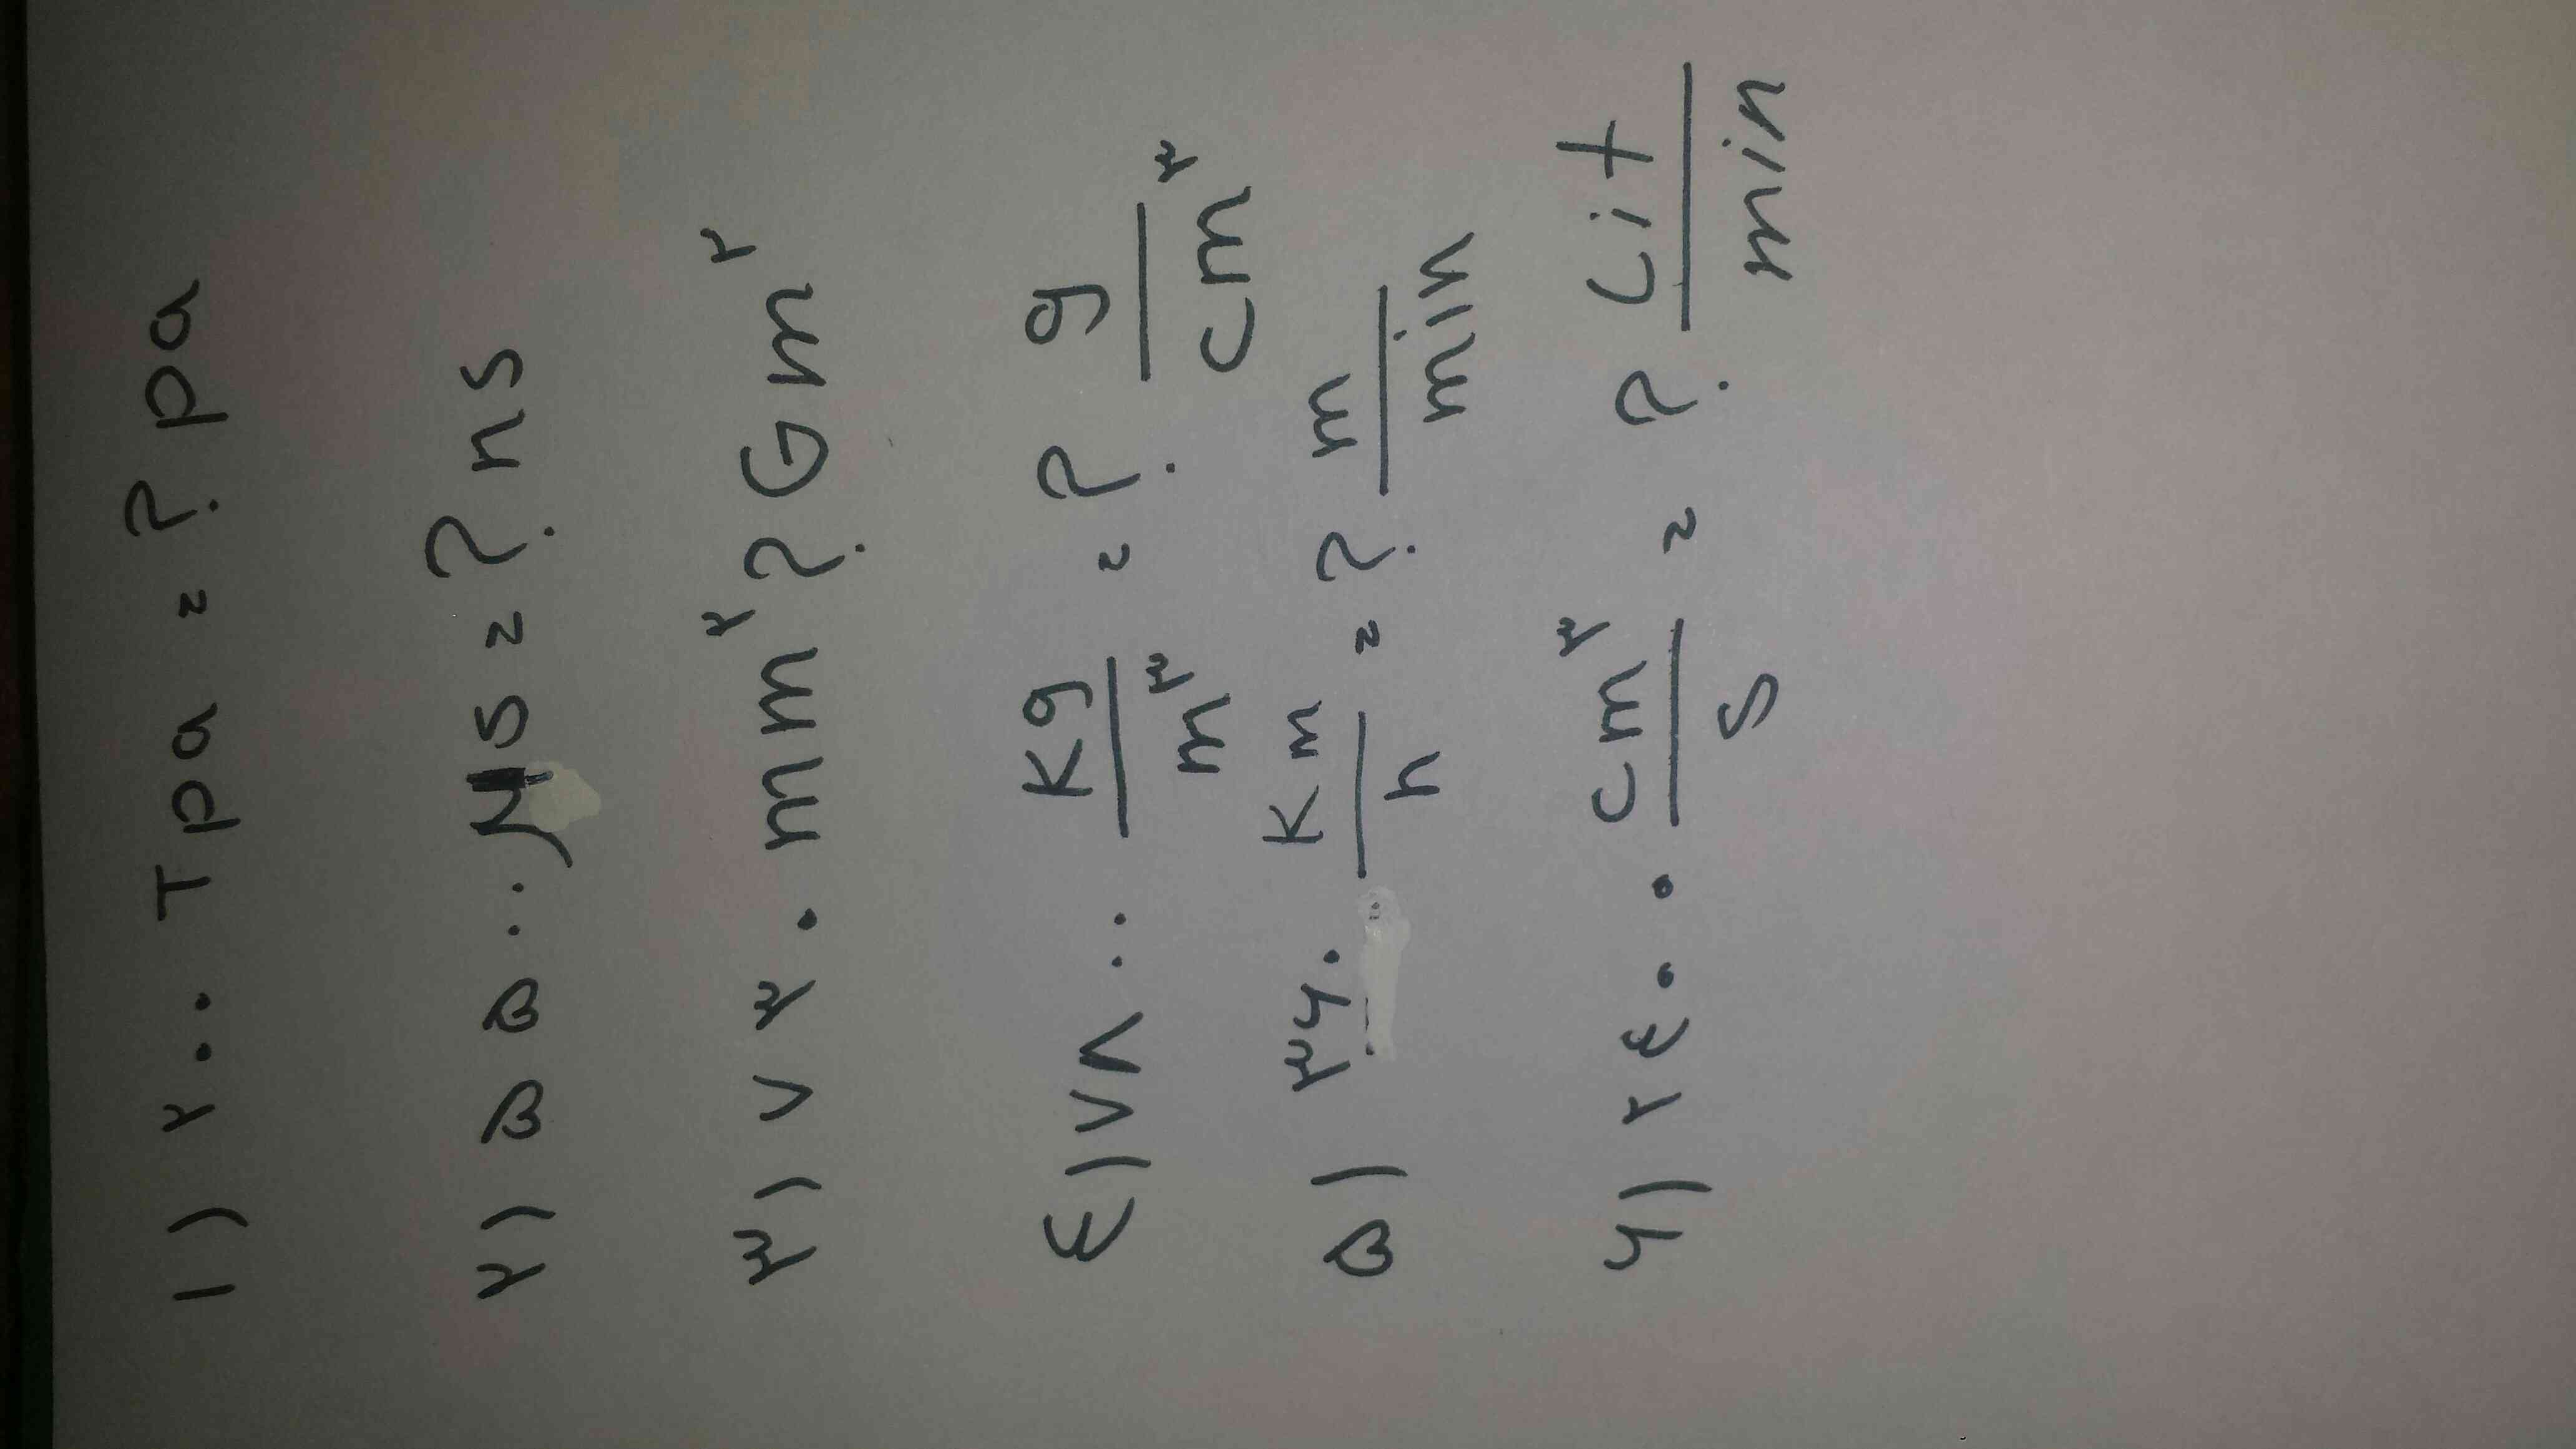 ۱) ۲۰۰ Tpa = ? pa
۲) ۵۵۰۰ μs = ? ns
۳) ۷۳۰ mm^۲ ? Gm^۲
۴) ۷۸۰۰ kg/m^۳ = ? g/cm^۳
۵) ۳۶۰ km/h = ? m/min
۶) ۲۴۰۰ cm^۳/s = ? Lit/min